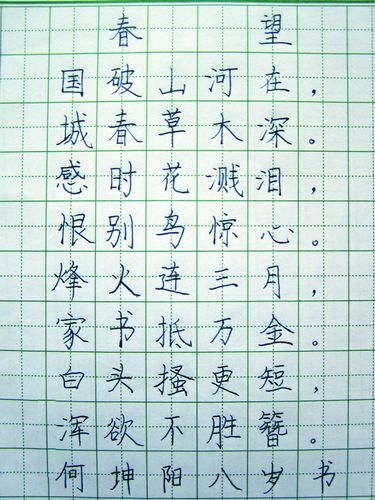 春望
国破山河在，
城春草木深。
感时花溅泪，
恨别鸟惊心。
烽火连三月，
家书抵万金。
白头搔更短，
浑欲不胜簪。
何坤阳八岁书